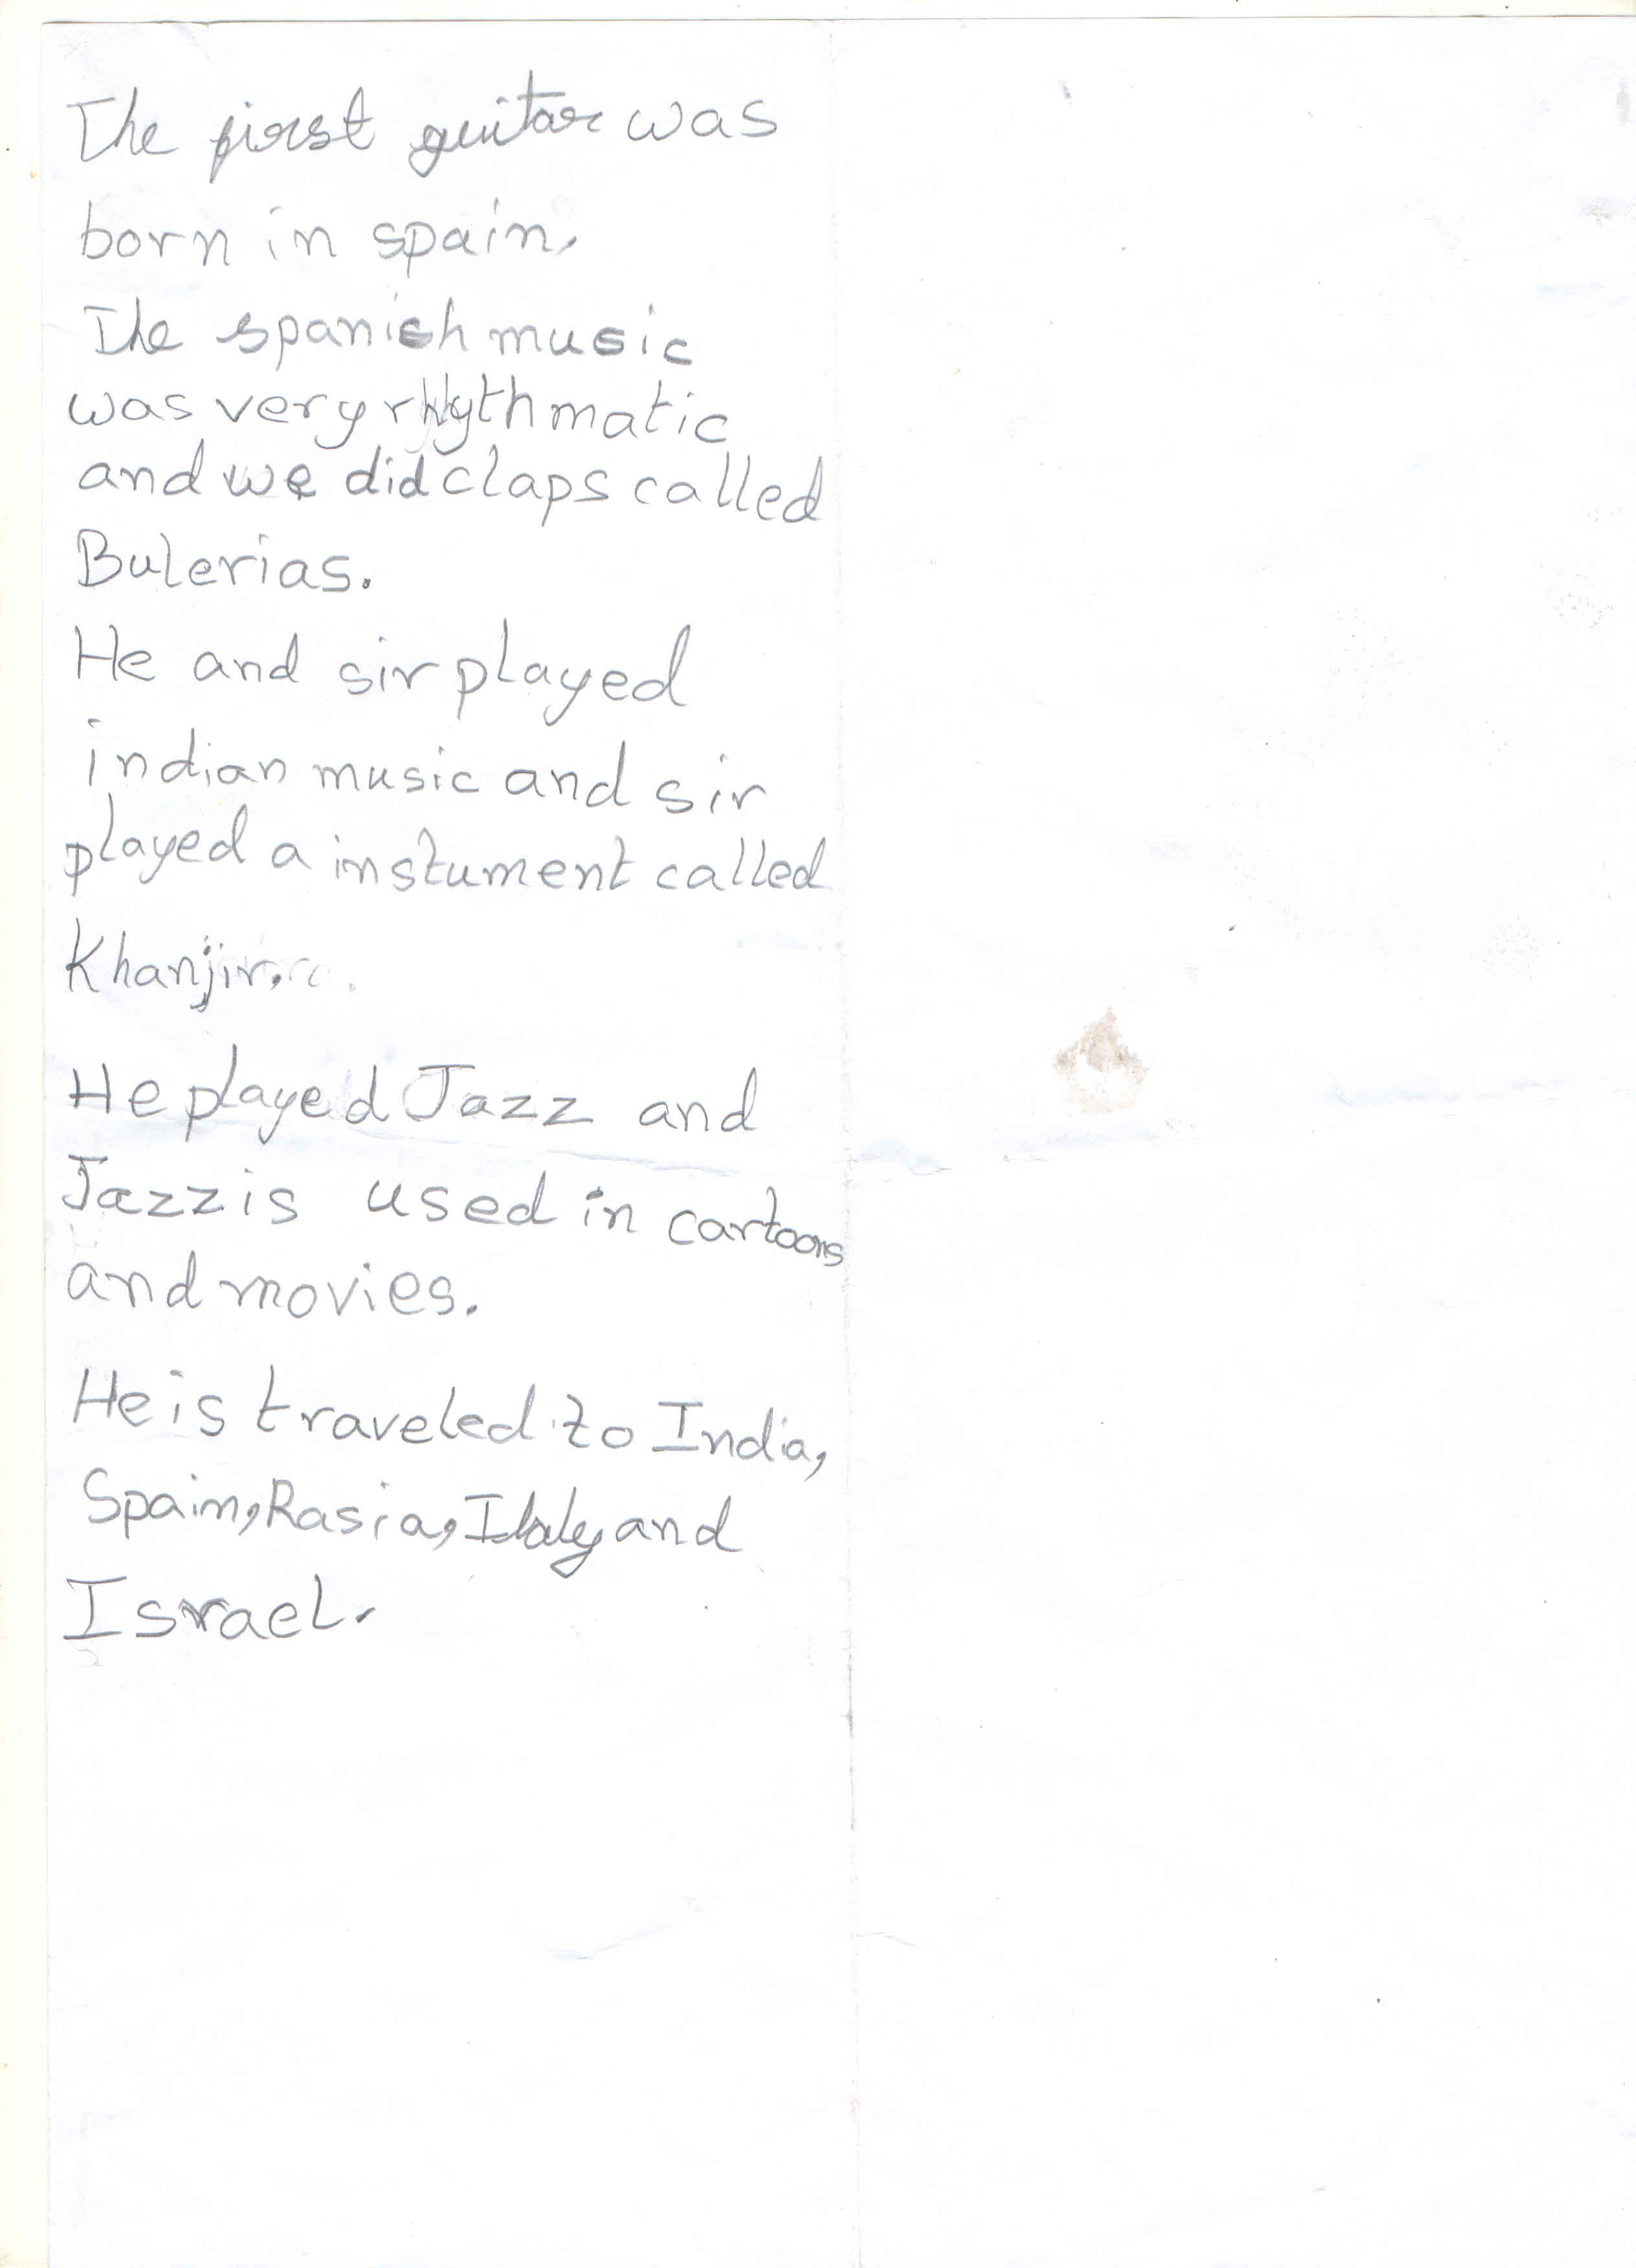 The first guitar was
born in spain.
The spanish music
was very rhythmatic
and we did claps called
Bulerias.
He and sir played
indian music and sir
played a instument called
Khanjir.
He played Jazz and
Jazz is used in cartoons
and movies.
He is traveled to India,
Spain, Rasia, Italy and
Israel.